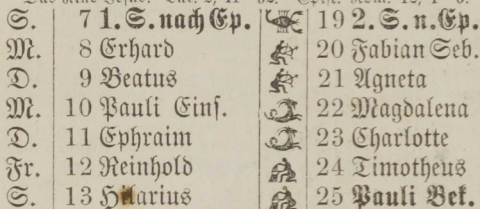 S. 7 1. S. nach Ep. 19 2. S. n. Ep.
M. 8 Erhard 20 Fabian Seb.
D. 9 Beatus 21 Agneta
M. 10 Pauli Eins. 22 Magdalena
D. 11 Ephraim 23 Charlotte
Fr. 12 Reinhold 24 Timotheus
S. 13 Hilarius 25 Pauli Bek.